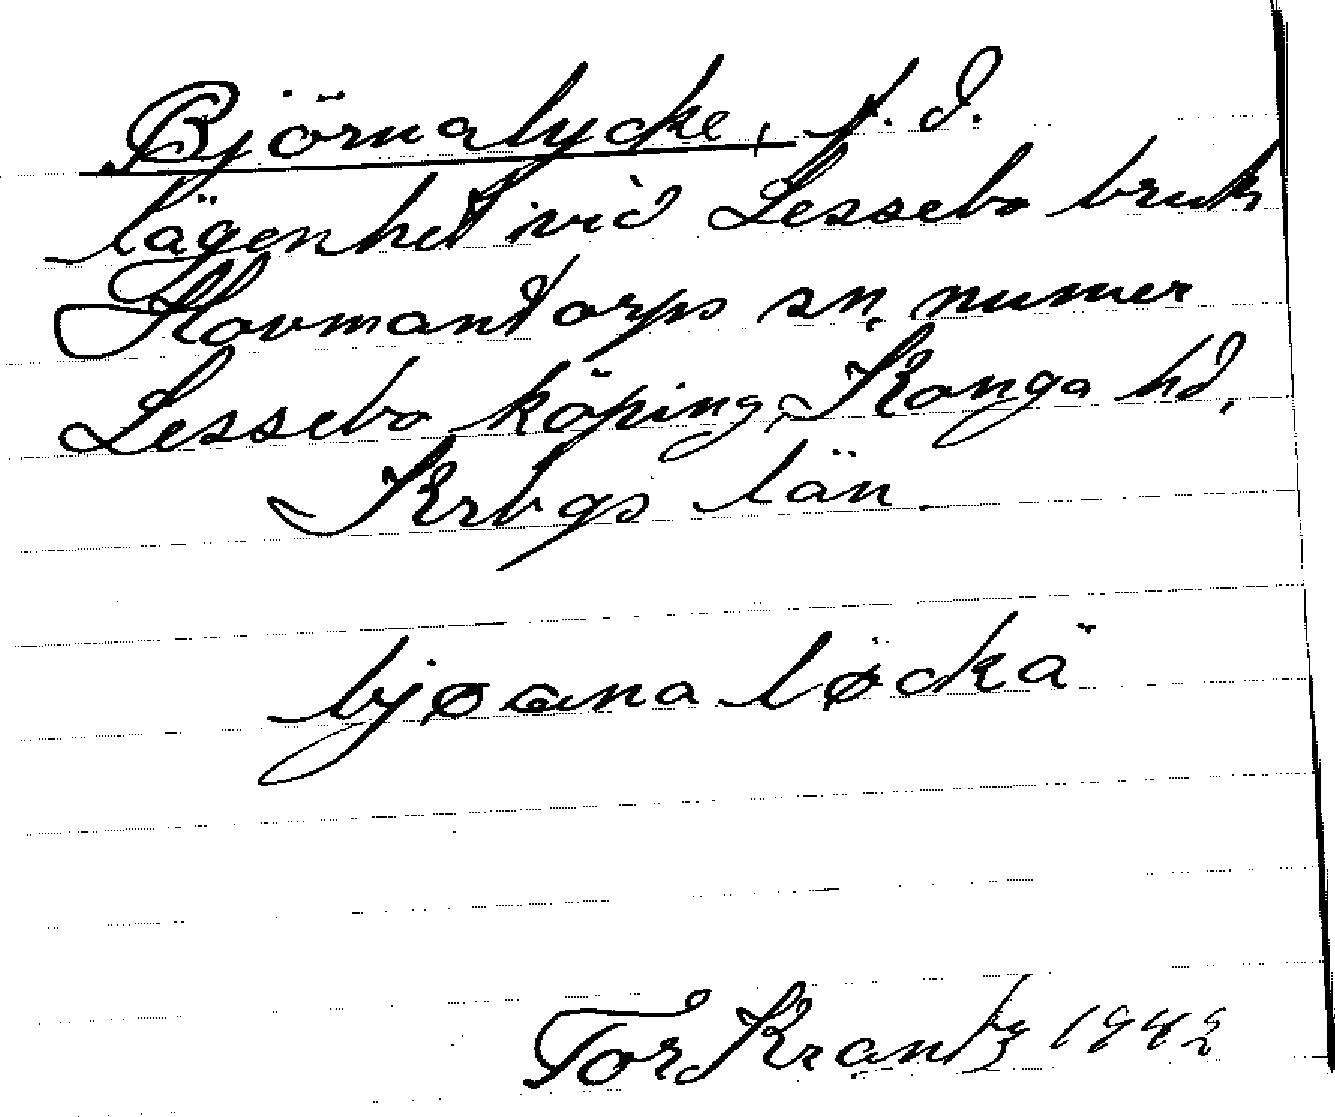 Björnalycke, f.d.
lägenhet vid Lessebo bruk
Hovmantorps sn, numer
Lessebo köping, Konga hd,
Krbgs län
bjøana løckä
Tor Krantz 1942